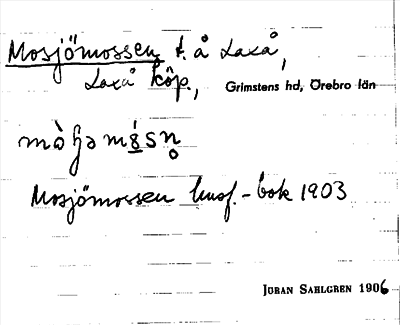 Mosjömossen t. å Laxå,
Laxå köp., Grimstens hd, Örebro län
Mosjömossen husf.-bok 1903
JÖRAN SAHLGREN 1906